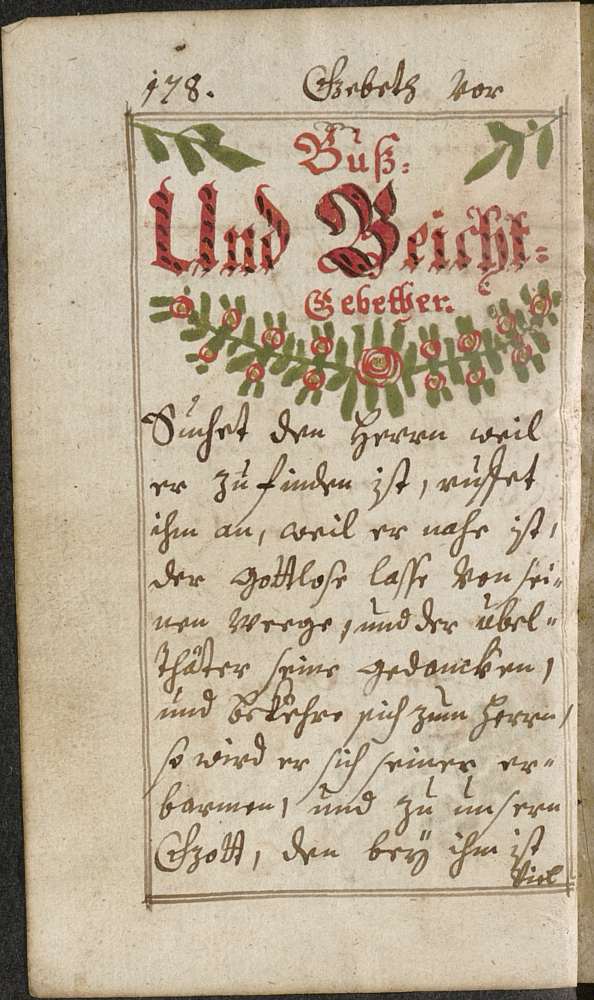 178. Gebeth vor
Buß-
Und Beicht-
Gebether.
Suchet den Herrn weil
er zu finden ist, ruffet
ihm an, weil er nahe ist,
der gottlose lasse von sei-
nen Weege, und der übel-
thäter seine gedancken,
und bekehre sich zum Herrn,
so wird er sich seiner er-
barmen, und zu unsern
Gott, den bey ihm ist
Viel